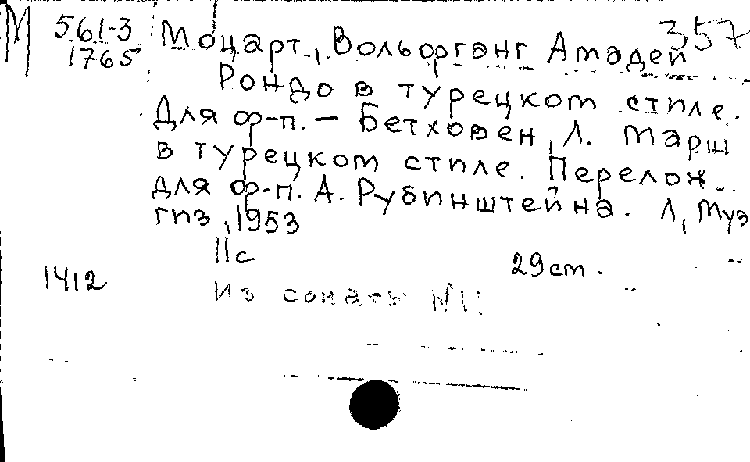 М 561-3 357
1765
Моцарт, Вольфганг Амадей
Рондо в турецком стиле.
Для ф-п. — Бетховен, Л. Марш
в турецком стиле. Перелож.
для ф-п. А. Рубинштейна. Л, Муз
гиз, 1953
11с
29 cm.
1412
Из сонаты № 11